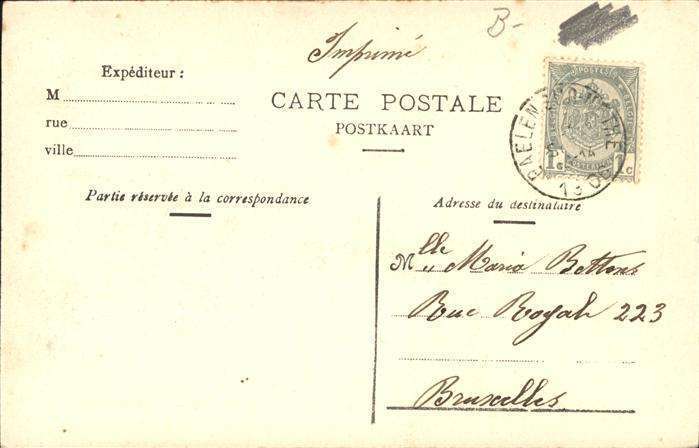 B-
Imprimé
Expéditeur :
M
rue
ville
CARTE POSTALE
POSTKAART
POSTES
1c 1c
BAELEN
Partie réservée à la correspondance
Adresse du destinataire
Mlle Maria Bettens
Rue Royale 223
Bruxelles.